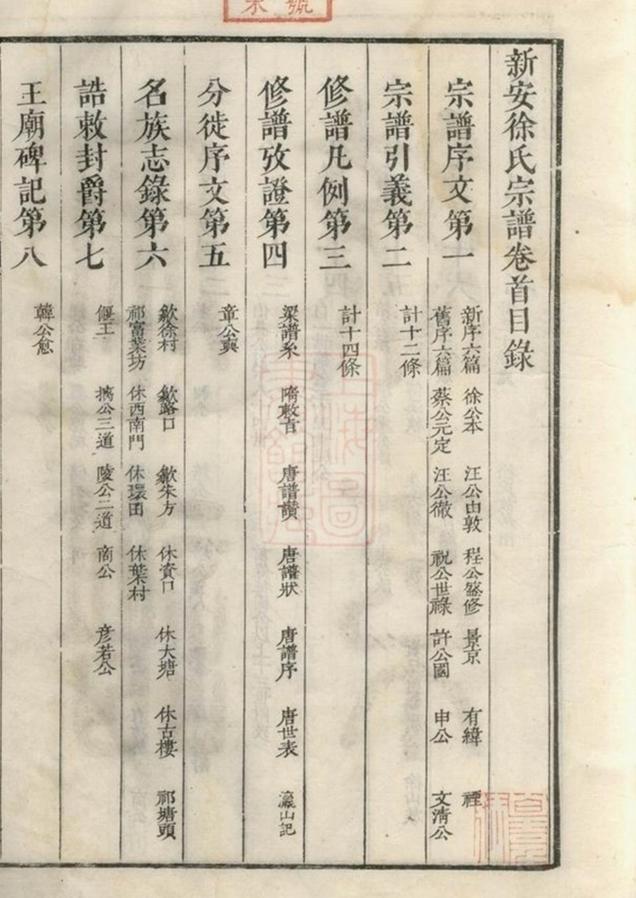 新安徐氏宗譜卷首目錄
宗譜序文第一
新序六篇 徐公本 汪公由敦 程公盛修 景京 有緯 禋
舊序六篇 蔡公元定 汪公徹 祝公世祿 許公國 申公 文清公
宗譜引義第二 計十二條
修譜凡例第三 計十四條
修譜攷證第四 梁譜系 隋敕旨 唐譜讚 唐譜狀 唐譜序 唐世表 瀛山記
分徙序文第五 章公奭
名族志錄第六
歙徐村 歙路口 歙朱方 休資口 休大塘 休古樓 祁塘頭
祁富業坊 休西南門 休環田 休葉村
誥敕封爵第七 偃王 摛公三道 陵公二道 商公 彥若公
王廟碑記第八 韓公愈